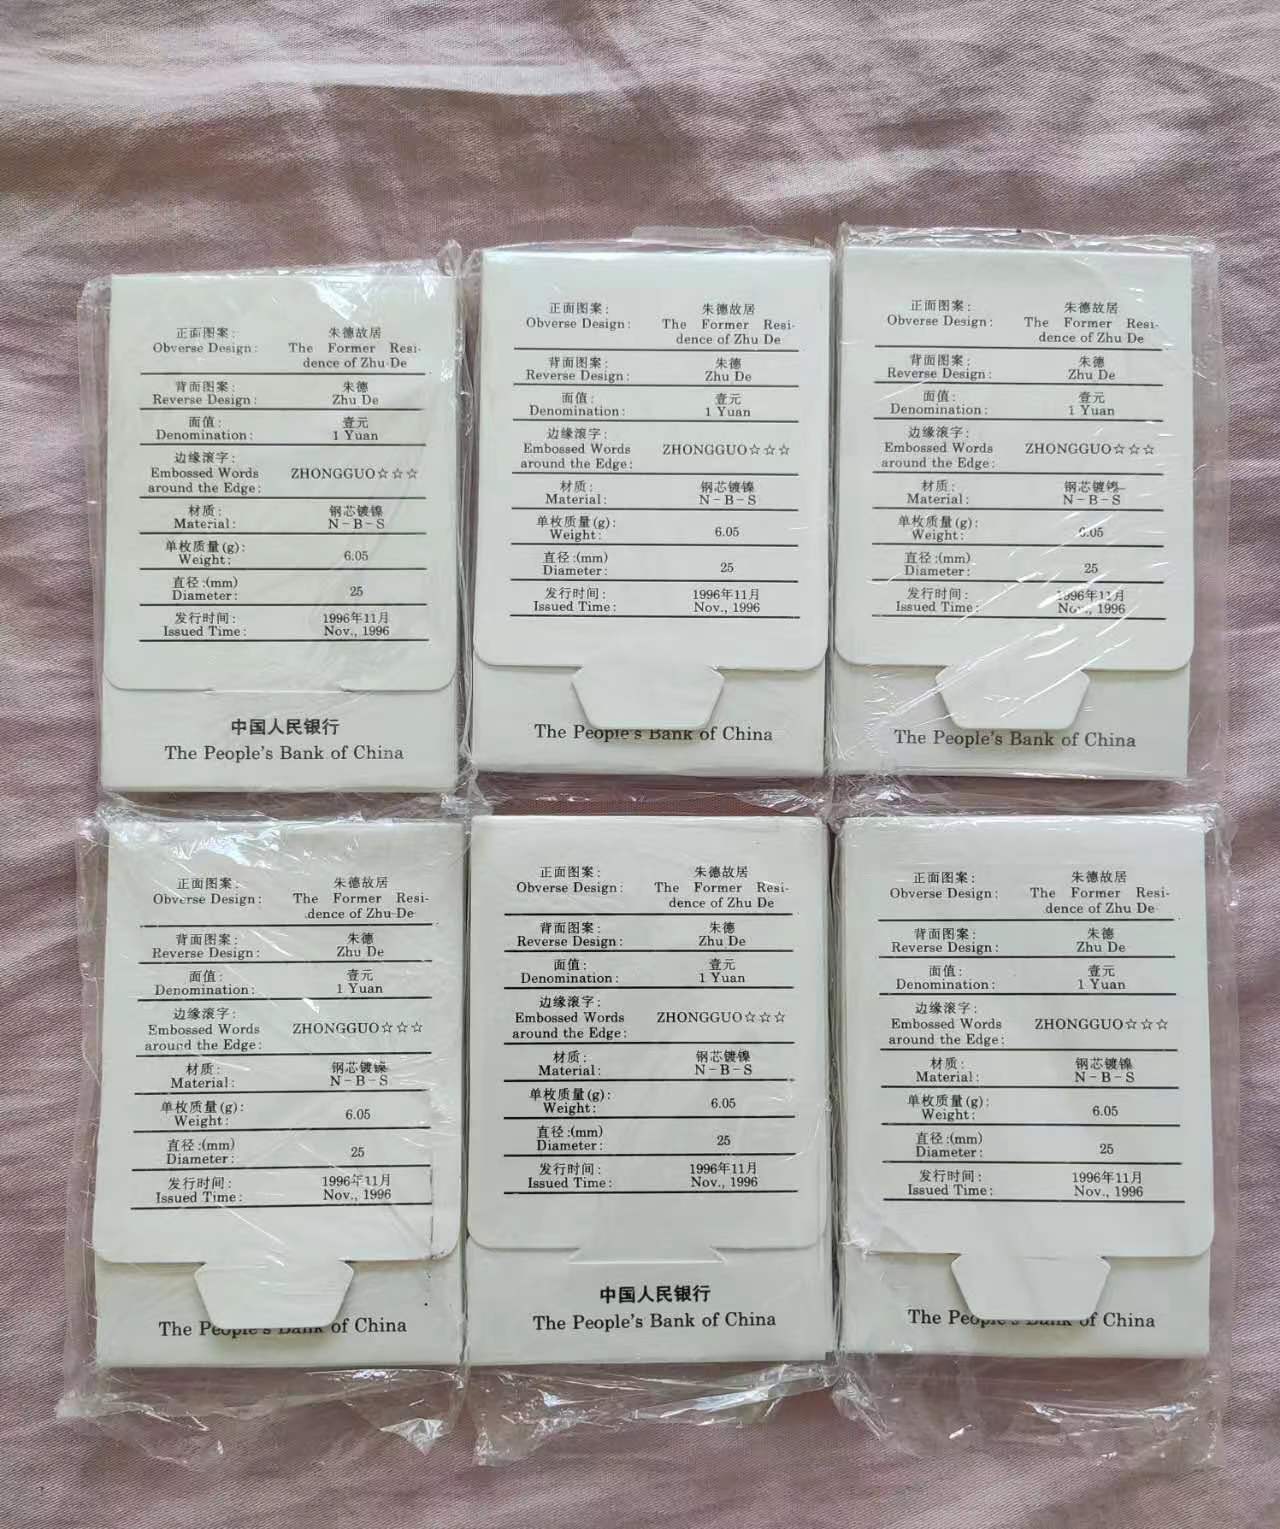 正面图案: 朱德故居
Obverse Design: The Former Resi-
dence of Zhu De
背面图案: 朱德
Reverse Design: Zhu De
面值: 壹元
Denomination: 1 Yuan
边缘滚字:
Embossed Words ZHONGGUO☆☆☆
around the Edge:
材质: 钢芯镀镍
Material: N-B-S
单枚质量(g): 6.05
Weight:
直径:(mm) 25
Diameter:
发行时间: 1996年11月
Issued Time: Nov., 1996
中国人民银行
The People's Bank of China
正面图案: 朱德故居
Obverse Design: The Former Resi-
dence of Zhu De
背面图案: 朱德
Reverse Design: Zhu De
面值: 壹元
Denomination: 1 Yuan
边缘滚字:
Embossed Words ZHONGGUO☆☆☆
around the Edge:
材质: 钢芯镀镍
Material: N-B-S
单枚质量(g): 6.05
Weight:
直径:(mm) 25
Diameter:
发行时间: 1996年11月
Issued Time: Nov., 1996
The People's Bank of China
正面图案: 朱德故居
Obverse Design: The Former Resi-
dence of Zhu De
背面图案: 朱德
Reverse Design: Zhu De
面值: 壹元
Denomination: 1 Yuan
边缘滚字:
Embossed Words ZHONGGUO☆☆☆
around the Edge:
材质: 钢芯镀镍
Material: N-B-S
单枚质量(g): 6.05
Weight:
直径:(mm) 25
Diameter:
发行时间: 1996年11月
Issued Time: Nov., 1996
The People's Bank of China
正面图案: 朱德故居
Obverse Design: The Former Resi-
dence of Zhu De
背面图案: 朱德
Reverse Design: Zhu De
面值: 壹元
Denomination: 1 Yuan
边缘滚字:
Embossed Words ZHONGGUO☆☆☆
around the Edge:
材质: 钢芯镀镍
Material: N-B-S
单枚质量(g): 6.05
Weight:
直径:(mm) 25
Diameter:
发行时间: 1996年11月
Issued Time: Nov., 1996
The People's Bank of China
正面图案: 朱德故居
Obverse Design: The Former Resi-
dence of Zhu De
背面图案: 朱德
Reverse Design: Zhu De
面值: 壹元
Denomination: 1 Yuan
边缘滚字:
Embossed Words ZHONGGUO☆☆☆
around the Edge:
材质: 钢芯镀镍
Material: N-B-S
单枚质量(g): 6.05
Weight:
直径:(mm) 25
Diameter:
发行时间: 1996年11月
Issued Time: Nov., 1996
中国人民银行
The People's Bank of China
正面图案: 朱德故居
Obverse Design: The Former Resi-
dence of Zhu De
背面图案: 朱德
Reverse Design: Zhu De
面值: 壹元
Denomination: 1 Yuan
边缘滚字:
Embossed Words ZHONGGUO☆☆☆
around the Edge:
材质: 钢芯镀镍
Material: N-B-S
单枚质量(g): 6.05
Weight:
直径:(mm) 25
Diameter:
发行时间: 1996年11月
Issued Time: Nov., 1996
The People's Bank of China